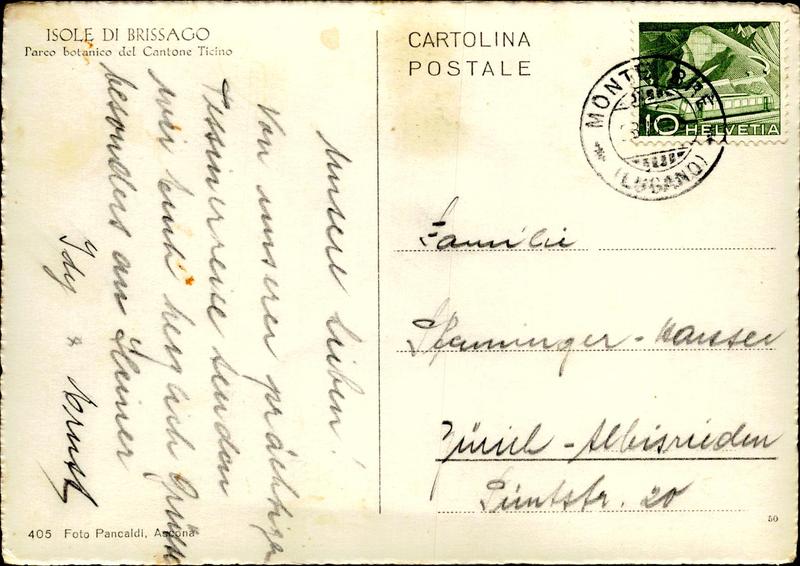 ISOLE DI BRISSAGO
Parco botanico del Cantone Ticino
Unsere Lieben!
Von unserer prächtigen
Tessinerreise senden
wir Euch herzlich Grüsse
besonders an Heiner
Idy & Ernst
405 Foto Pancaldi, Ascona
CARTOLINA
POSTALE
10 HELVETIA
MONTE BRÈ
(LUGANO)
Familie
Pfenninger-Hauser
Zürich-Albisrieden
20
50